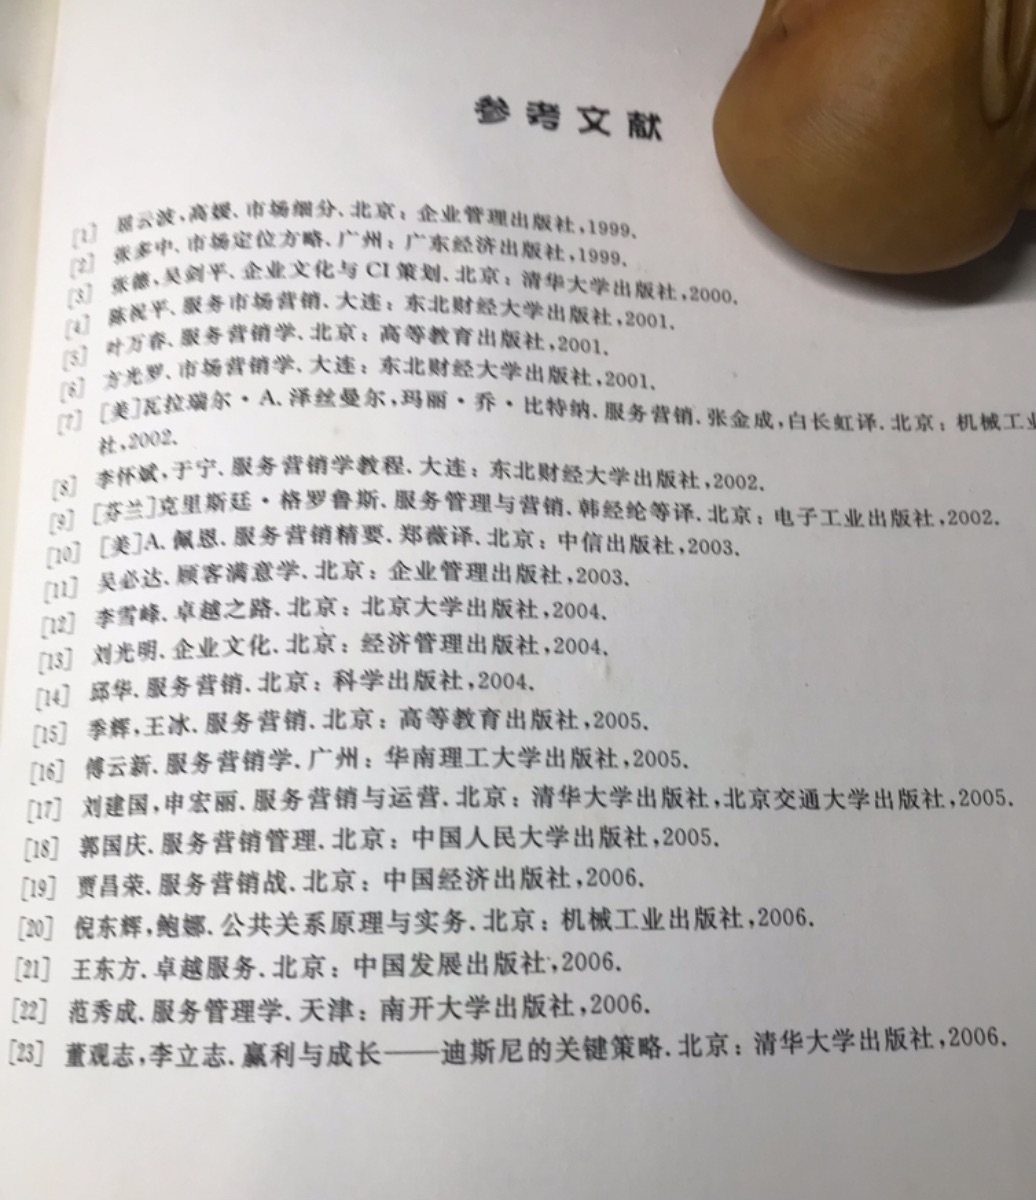 参考文献
[1] 屈云波,高媛.市场细分.北京:企业管理出版社,1999.
[2] 张多中.市场定位方略.广州:广东经济出版社,1999.
[3] 张德,吴剑平.企业文化与CI策划.北京:清华大学出版社,2000.
[4] 陈祝平.服务市场营销.大连:东北财经大学出版社,2001.
[5] 叶万春.服务营销学.北京:高等教育出版社,2001.
[6] 方光罗.市场营销学.大连:东北财经大学出版社,2001.
[7] [美]瓦拉瑞尔·A.泽丝曼尔,玛丽·乔·比特纳.服务营销.张金成,白长虹译.北京:机械工业
社,2002.
[8] 李怀斌,于宁.服务营销学教程.大连:东北财经大学出版社,2002.
[9] [芬兰]克里斯廷·格罗鲁斯.服务管理与营销.韩经纶等译.北京:电子工业出版社,2002.
[10] [美]A.佩恩.服务营销精要.郑薇译.北京:中信出版社,2003.
[11] 吴必达.顾客满意学.北京:企业管理出版社,2003.
[12] 李雪峰.卓越之路.北京:北京大学出版社,2004.
[13] 刘光明.企业文化.北京:经济管理出版社,2004.
[14] 邱华.服务营销.北京:科学出版社,2004.
[15] 季辉,王冰.服务营销.北京:高等教育出版社,2005.
[16] 傅云新.服务营销学.广州:华南理工大学出版社,2005.
[17] 刘建国,申宏丽.服务营销与运营.北京:清华大学出版社,北京交通大学出版社,2005.
[18] 郭国庆.服务营销管理.北京:中国人民大学出版社,2005.
[19] 贾昌荣.服务营销战.北京:中国经济出版社,2006.
[20] 倪东辉,鲍娜.公共关系原理与实务.北京:机械工业出版社,2006.
[21] 王东方.卓越服务.北京:中国发展出版社,2006.
[22] 范秀成.服务管理学.天津:南开大学出版社,2006.
[23] 董观志,李立志.赢利与成长——迪斯尼的关键策略.北京:清华大学出版社,2006.